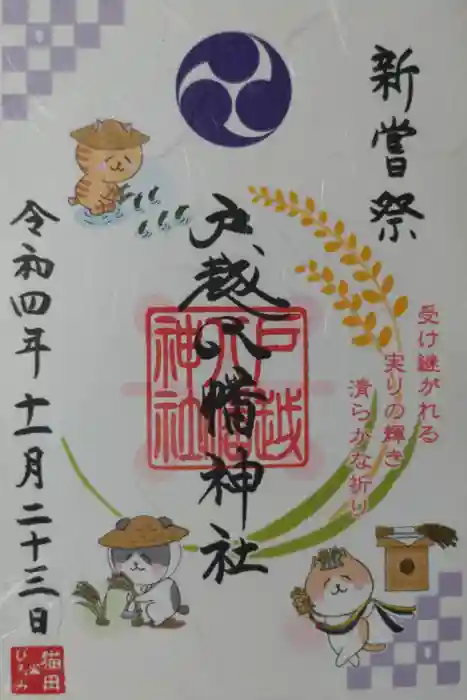 新嘗祭
受け継がれる
実りの輝き
清らかな祈り
戸越八幡神社
戸越八幡神社
令和四年十一月二十三日
猫田